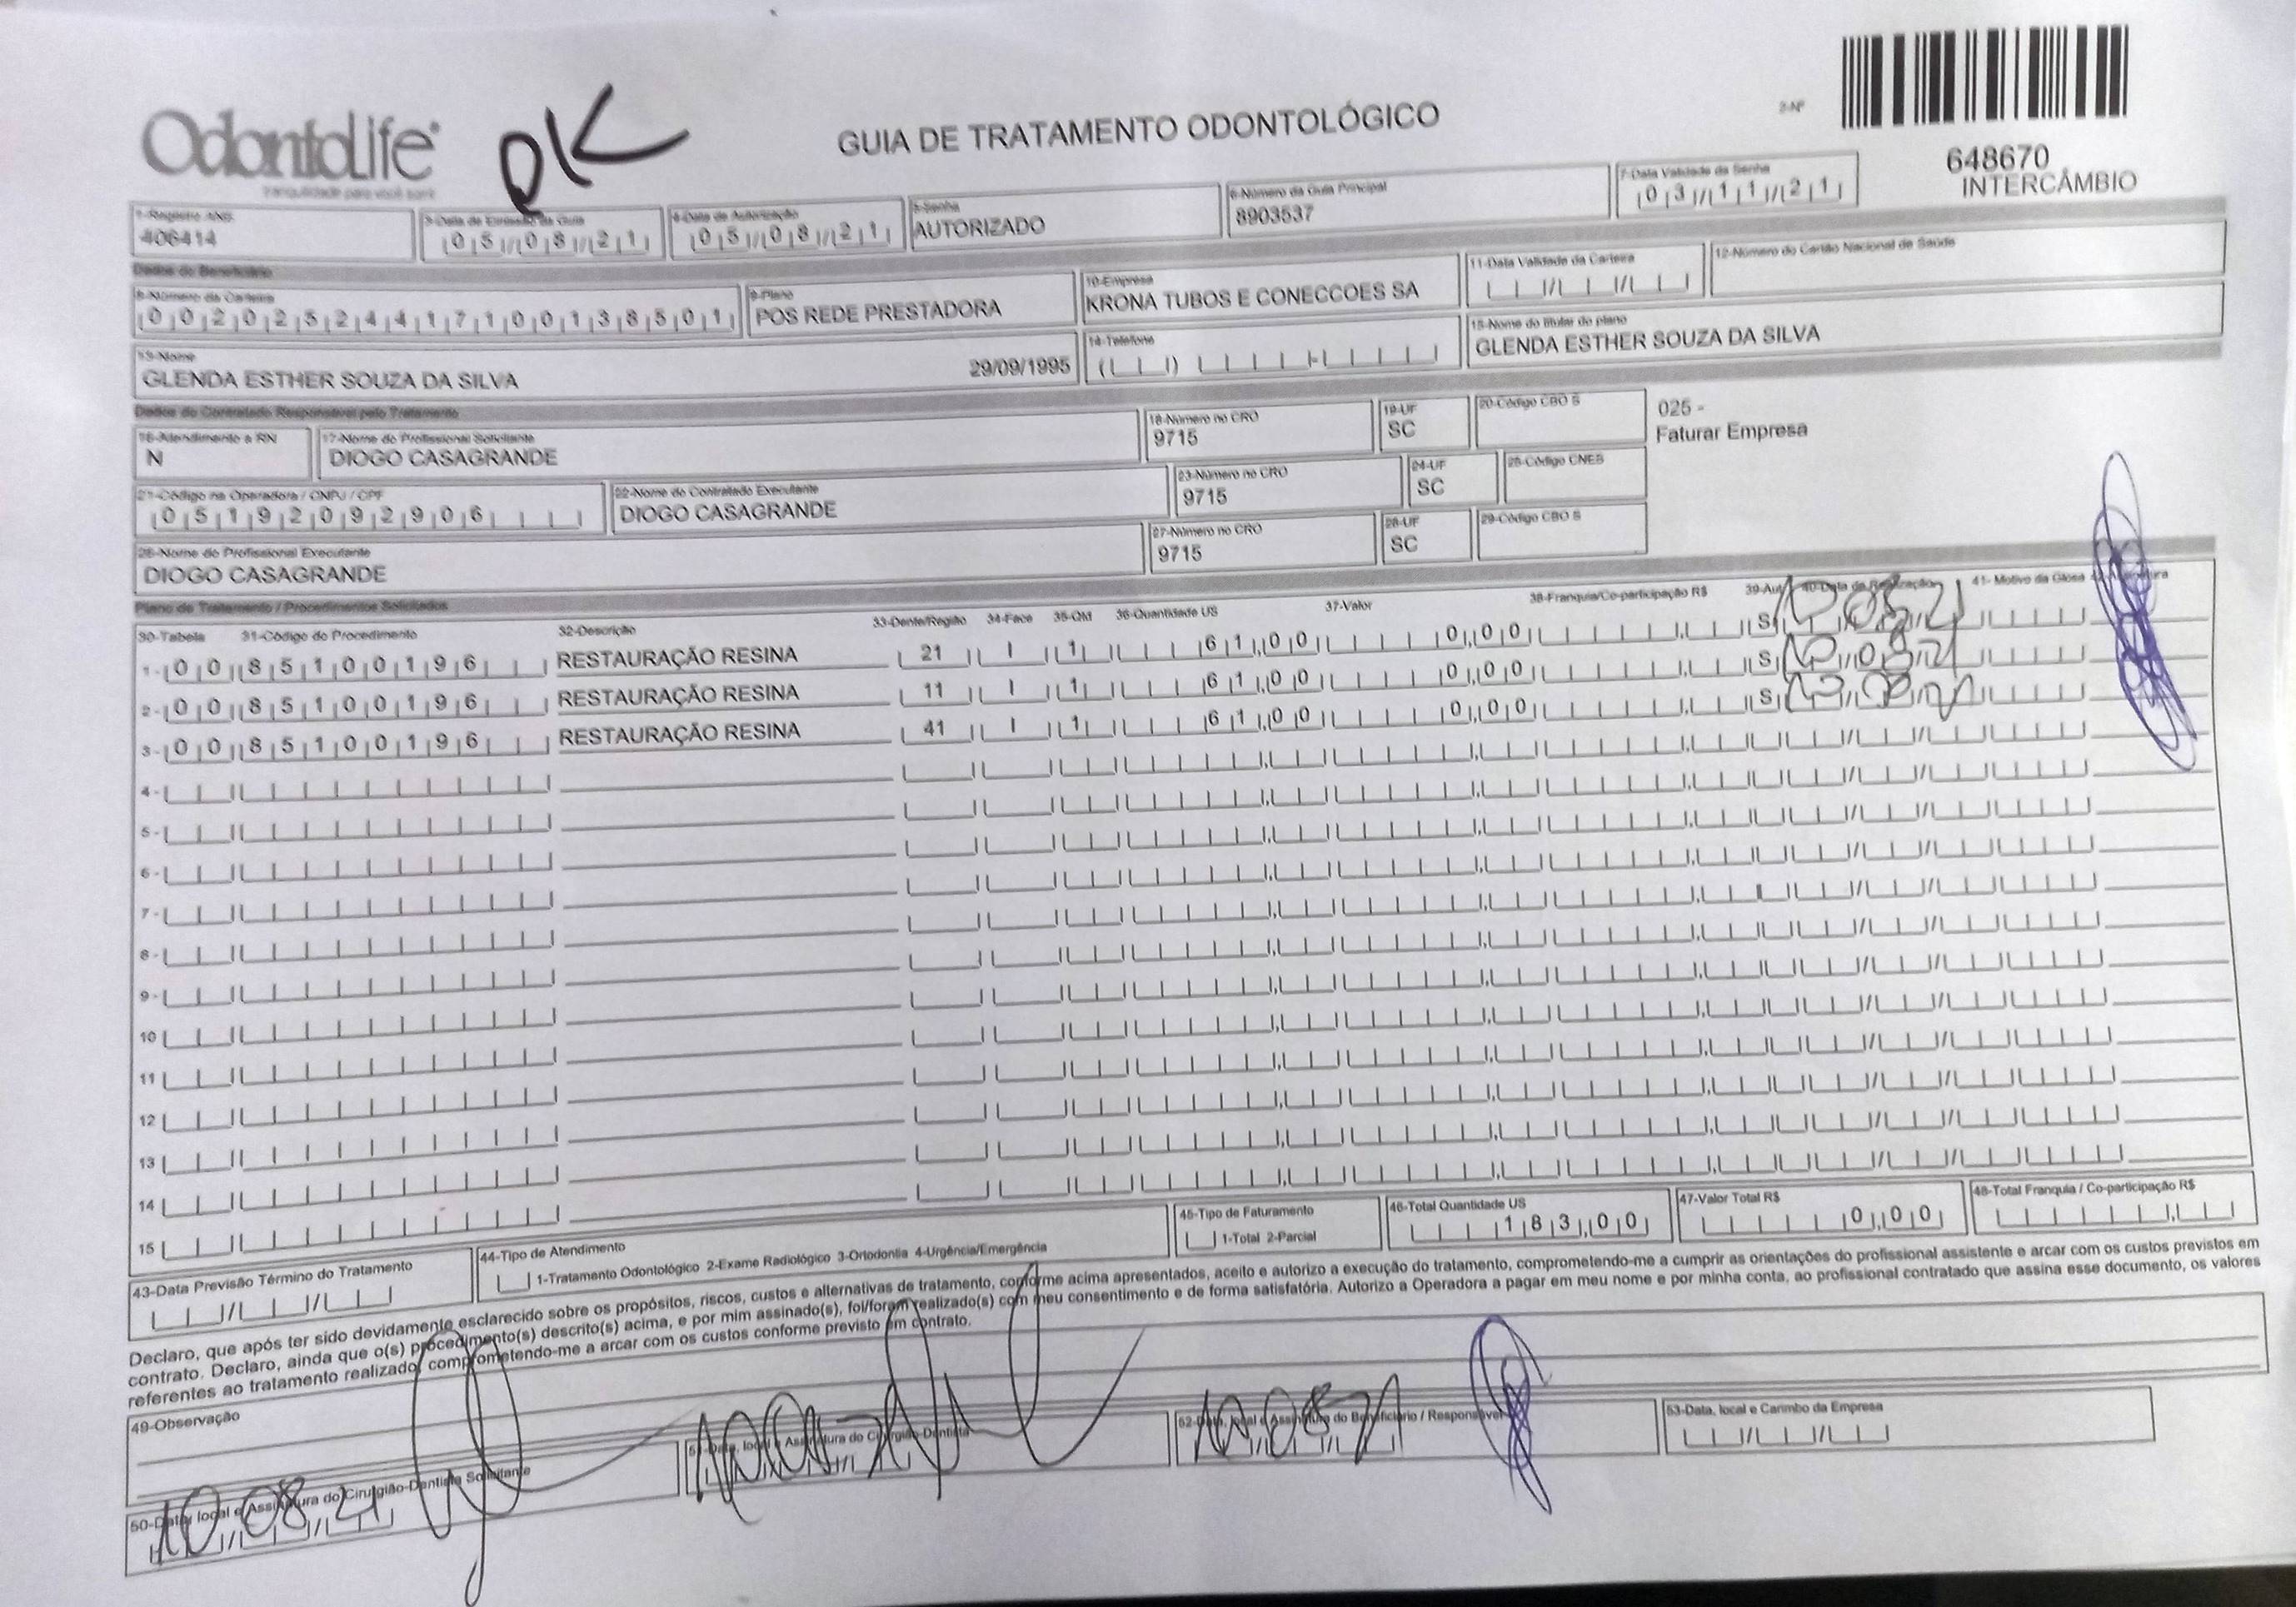 OdontoLife®
tranquilidade para você sorrir
OK
GUIA DE TRATAMENTO ODONTOLÓGICO
2-Nº
648670
INTERCÂMBIO
1-Registro ANS
406414
3-Data de Emissão da Guia
05/08/21
4-Data de Autorização
05/08/21
5-Senha
AUTORIZADO
6-Número da Guia Principal
8903537
7-Data Validade da Senha
03/11/21
Dados do Beneficiário
8-Número da Carteira
00202524417100138501
9-Plano
POS REDE PRESTADORA
10-Empresa
KRONA TUBOS E CONECCOES SA
11-Data Validade da Carteira
12-Número do Cartão Nacional de Saúde
13-Nome
GLENDA ESTHER SOUZA DA SILVA 29/09/1995
14-Telefone
15-Nome do titular do plano
GLENDA ESTHER SOUZA DA SILVA
Dados do Contratado Responsável pelo Tratamento
16-Atendimento a RN
N
17-Nome do Profissional Solicitante
DIOGO CASAGRANDE
18-Número no CRO
9715
19-UF
SC
20-Código CBO S
025 -
Faturar Empresa
21-Código na Operadora / CNPJ / CPF
05192092906
22-Nome do Contratado Executante
DIOGO CASAGRANDE
23-Número no CRO
9715
24-UF
SC
25-Código CNES
26-Nome do Profissional Executante
DIOGO CASAGRANDE
27-Número no CRO
9715
28-UF
SC
29-Código CBO S
Plano de Tratamento / Procedimentos Solicitados
30-Tabela 31-Código do Procedimento 32-Descrição 33-Dente/Região 34-Face 35-Qtd 36-Quantidade US 37-Valor 38-Franquia/Co-participação R$ 39-Aut 40-Data de Realização 41- Motivo da Glosa
1- 00 85100196 RESTAURAÇÃO RESINA 21 I 1 61,00 0,00 S 10 08 21
2- 00 85100196 RESTAURAÇÃO RESINA 11 I 1 61,00 0,00 S 10 08 21
3- 00 85100196 RESTAURAÇÃO RESINA 41 I 1 61,00 0,00 S 10 08 21
4-
5-
6-
7-
8-
9-
10
11
12
13
14
15
43-Data Previsão Término do Tratamento
44-Tipo de Atendimento
1-Tratamento Odontológico 2-Exame Radiológico 3-Ortodontia 4-Urgência/Emergência
45-Tipo de Faturamento
1-Total 2-Parcial
46-Total Quantidade US
183,00
47-Valor Total R$
0,00
48-Total Franquia / Co-participação R$
Declaro, que após ter sido devidamente esclarecido sobre os propósitos, riscos, custos e alternativas de tratamento, conforme acima apresentados, aceito e autorizo a execução do tratamento, comprometendo-me a cumprir as orientações do profissional assistente e arcar com os custos previstos em
contrato. Declaro, ainda que o(s) procedimento(s) descrito(s) acima, e por mim assinado(s), foi/foram realizado(s) com meu consentimento e de forma satisfatória. Autorizo a Operadora a pagar em meu nome e por minha conta, ao profissional contratado que assina esse documento, os valores
referentes ao tratamento realizado, comprometendo-me a arcar com os custos conforme previsto em contrato.
49-Observação
50-Data, local e Assinatura do Cirurgião-Dentista Solicitante
10 08 21
51-Data, local e Assinatura do Cirurgião-Dentista
52-Data, local e Assinatura do Beneficiário / Responsável
10 08 21
53-Data, local e Carimbo da Empresa